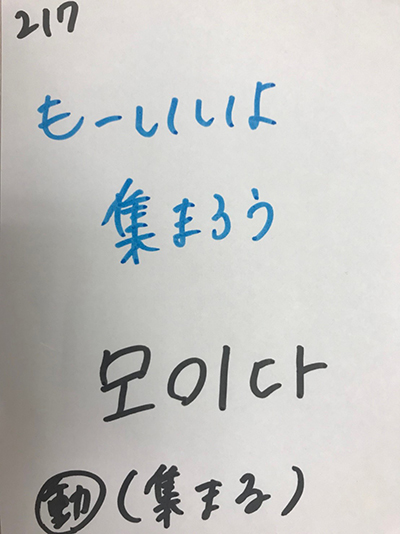 217
もーいいよ
集まろう
모이다
動(集まる)